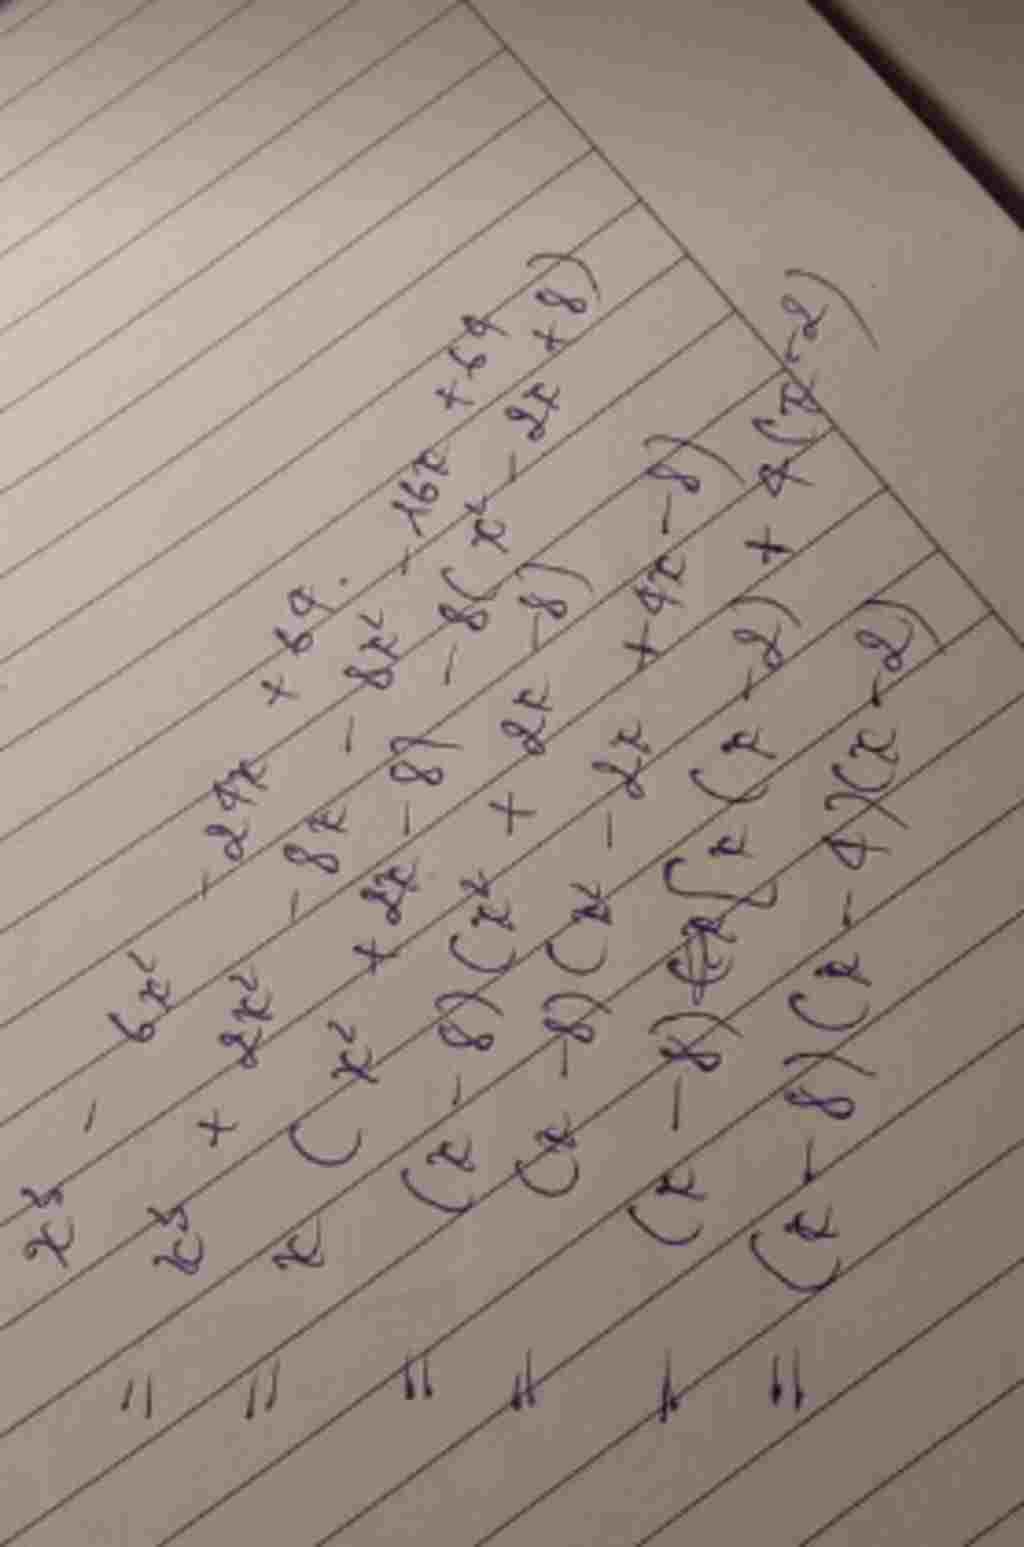 x³ - 6x² - 24x + 64.
= x³ + 2x² - 8x - 8x² - 16x + 64
= x (x² + 2x - 8) - 8(x² - 2x + 8)
= (x - 8)(x² + 2x - 8)
= (x - 8)(x² - 2x + 4x - 8)
= (x - 8) [x(x - 2) + 4(x - 2)
= (x - 8)(x - 4)(x - 2)